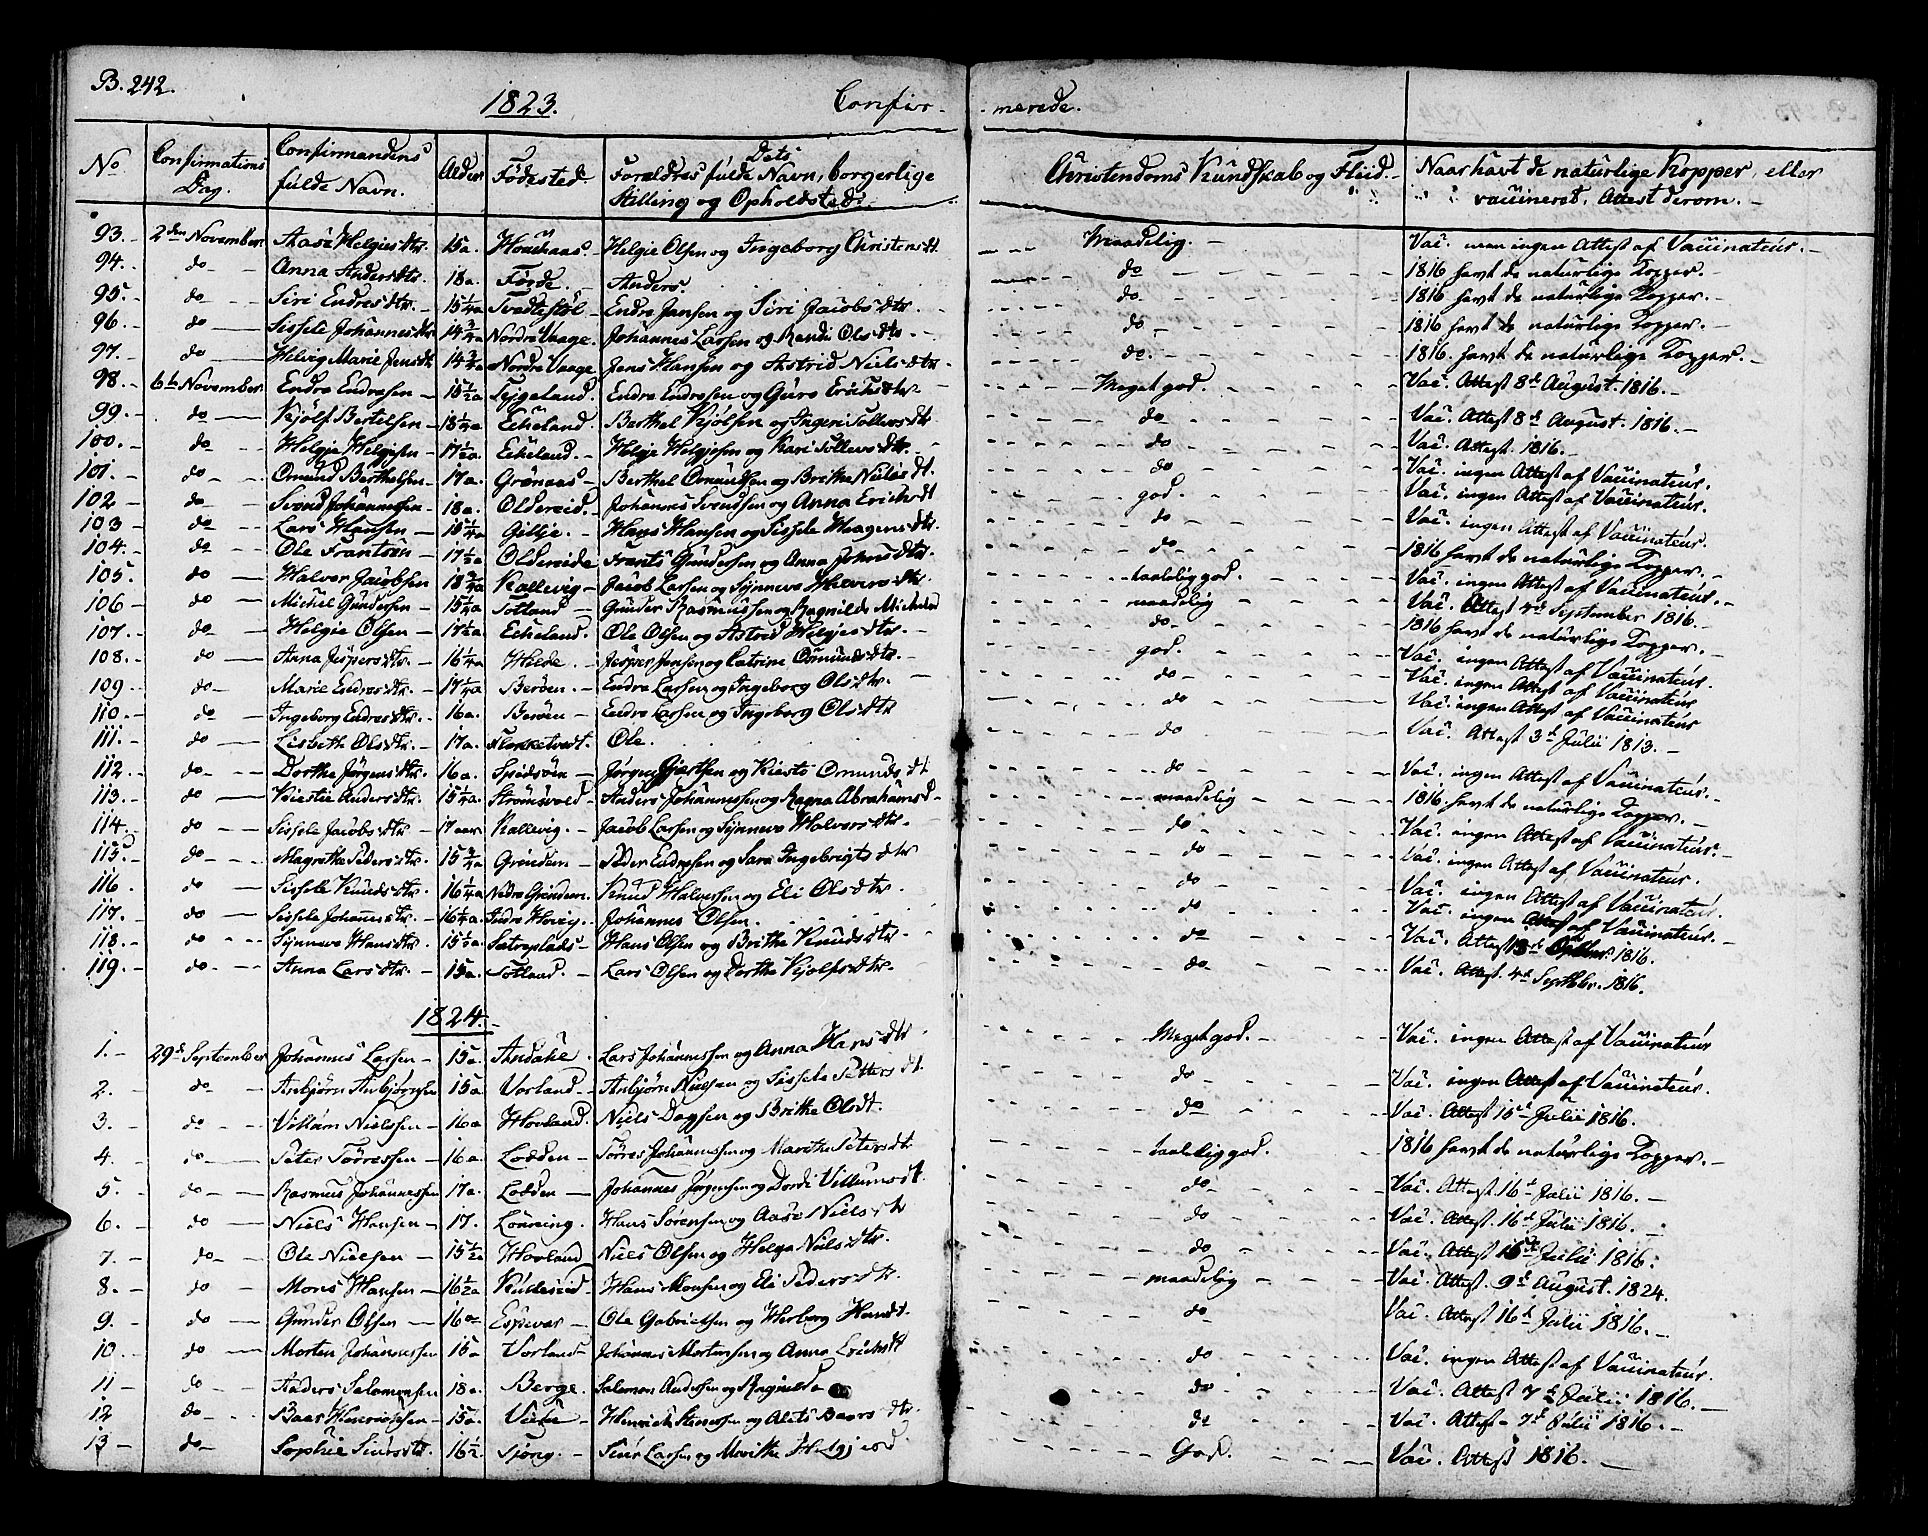 B. 242.
1823. Confir- -merede.
No Confirmations Dag. Confirmandens fulde Navn. Alder Fødested. Dets Forældres fulde Navn, borgerlige Stilling og Opholdsted. Christendoms Kundskab og Fliid. Naar havt de naturlige Kopper, eller vaccineret, Attest derom.
93. 2den November Aase Helgiesdtr. 15a. Helgie Olsen og Ingeborg Christensdt. Maadelig. Vac. men ingen Attest af Vaccinateur.
94. do Anna Andersdtr. 18a. Førde. Anders. do 1816 havt de naturlige Kopper.
95. do Siri Endresdtr. 15 1/4a Endre Jansen og Siri Jacobsdtr. do 1816 havt de naturlige Kopper.
96. do Sissele Johannesdtr 14 3/4a Nordre Vaage. Johannes Larsen og Randi Olsdtr. do 1816 havt de naturlige Kopper.
97. do Helvig Marie Jensdt 14 3/4a Nordre Vaage Jens Hansen og Astrid Nielsdtr. do. 1816. havt de naturlige Kopper.
98. 6te November Endre Endresen 15 1/2a Tyeland. Endre Endresen og Guro Erichsdtr. Meget god. Vac. Attest 8d August. 1816.
99. do Kjølf Bertelsen 18 1/4a Echeland. Berthel Kjølsen og Ingeri Tollevsdtr do Vac. Attest 8d August. 1816.
100. do Helgje Helgjesen 17 1/2a Echeland. Helgje Helgjesen og Kari Tollevsdtr. do Vac. Attest. 1816.
101. do Omund Berthelsen 17a. Grønaas Berthel Omundsen og Brithe Nielsdt. do Vac. ingen Attest af Vaccinateur.
102 do Svend Johannesen 18a. Oldereid. Johannes Svendsen og Anna Erichsdt god. Vac. ingen Attest af Vaccinateur.
103 do Lars Hansen 15 1/4a Gillje. Hans Hansen og Sissele Maagensdtr. do Vac. ingen Attest af Vaccinateur.
104. do Ole Frantsen 17 1/2a Oldereide Frants Gundersen og Anna Johnsdtr. do 1816 havt de naturlige Kopper.
105. do Halvor Jacobsen 18 3/4a Kallevig. Jacob Larsen og Synneve Halvorsdtr taalelig god. Vac. ingen Attest af Vaccinateur.
106 do Michel Gundersen 15 1/4a Totland Gunder Rasmussen og Ragnilde Michelsd maadelig Vac. Attest 4d September 1816.
107. do Helgie Olsen 17 1/2a Echeland. Ole Olsen og Astrid Helgjesdtr. do 1816 havt de naturlige Kopper.
108. do Anna Jespersdtr. 16 1/4a Hilde. Jesper Jensen og Catrine Omundsdtr. god. Vac. ingen Attest af Vaccinateur.
109 do Marie Endresdtr. 17 1/4a Berøen. Endre Larsen og Ingeborg Olsdtr. do Vac. ingen Attest af Vaccinateur
110. do Ingeborg Endresdtr. 16a. Berøen Endre Larsen og Ingeborg Olsdtr do Vac. ingen Attest af Vaccinateur
111. do Lisbeth Olsdtr. 17a. Flokketvedt. Ole. do Vac. Attest 3d Julii 1813.
112. do Dorthe Jørgensdtr. 16a. Spidsøen Jørgen Gjertsen og Kiersti Omundsdt do Vac. ingen Attest af Vaccinateur.
113. do Kiestie Andersdtr. 15 1/4a. Strømsvold Anders Johannessen og Ragna Abrahamsd maadelig 1816 havt de naturlige Kopper.
114. do Sissele Jacobsdtr 17 aar Kallevig. Jacob Larsen og Synneve Halvorsdtr. do Vac. ingen Attest af Vaccinateur.
115. do Magretha Pedersdtr. 15 3/4a Grinden Peder Endresen og Sara Ingebrigtsdtr do Vac. ingen Attest af Vaccinateur.
116. do Sissele Knudsdtr. 16 1/4a Nedre Grinden. Knud Halvorsen og Eli Olsdtr. do Vac. ingen Attest af Vaccinateur.
117. do Sissele Johannesdtr. 16 1/4a Indre Hovig. Johannes Olsen. do Vac. ingen Attest af Vaccinateur.
118. do Synneve Hansdtr. 15 1/2a. Sætreplads Hans Olsen og Brithe Knudsdtr do Vac. Attest 1816.
119. do Anna Larsdtr. 15a. Totland. Lars Olsen og Dorthe Kjolfsdtr. do Vac. Attest. 4d Septbr. 1816.
1824.
1. 29d September Johannes Larsen 15a. Andahe. Lars Johannessen og Anna Hansdtr Meget god. Vac. ingen Attest af Vaccinateur
2. do Anbjørn Anbjørnsen 15a Vorland Anbjørn Nielsen og Sissele Pettersdt. do Vac. ingen Attest af Vaccinateur.
3. do Villum Nielsen 16a Hovland. Niels Dagsen og Brithe Olsdt. do Vac. Attest 15d Julii 1816.
4. do Peter Torressen 16a. Lodden Torres Johannessen og Marithe Petersdt. taalelig god. 1816 havt de naturlige Kopper.
5. do Rasmus Johannessen 17a. Lodden Johannes Jørgensen og Dordi Villumsdt. do Vac. Attest 16d Julii 1816.
6. do Niels Hansen 17. Lønning. Hans Sørensen og Aase Nielsdtr do Vac. Attest. 16d Julii 1816.
7. do Ole Nielsen 15 1/2a Hovland Niels Olsen og Helga Nielsdtr. do Vac. Attest 16de Julii 1816.
8. do Mons Hansen 16 1/2a Kulleseid Hans Monsen og Eli Pedersdtr. maadelig Vac. Attest. 9d August. 1824.
9. do Gunder Olsen 16a Espevær Ole Gabrielsen og Herborg Hansdt. do Vac. Attest 16d Julii 1816.
10. do Morten Johannessen 15a Vorland Johannes Mortensen og Anna Erichsdt do Vac. ingen Attest af Vaccinateur.
11 do Anders Salomonsen 18a. Berge. Salomon Andersen og Ingnilde do Vac. Attest 7d Julii 1816.
12 do Baar Henrichsen 15a. Henrich Stenersen og Alets Baarsdtr. do Vac. Attest 7d Julii 1816.
13 do Sophie Siursdtr. 16 1/2 Tjong. Siur Larsen og Marithe Helgjesd. God. Vac. Attest 1816.